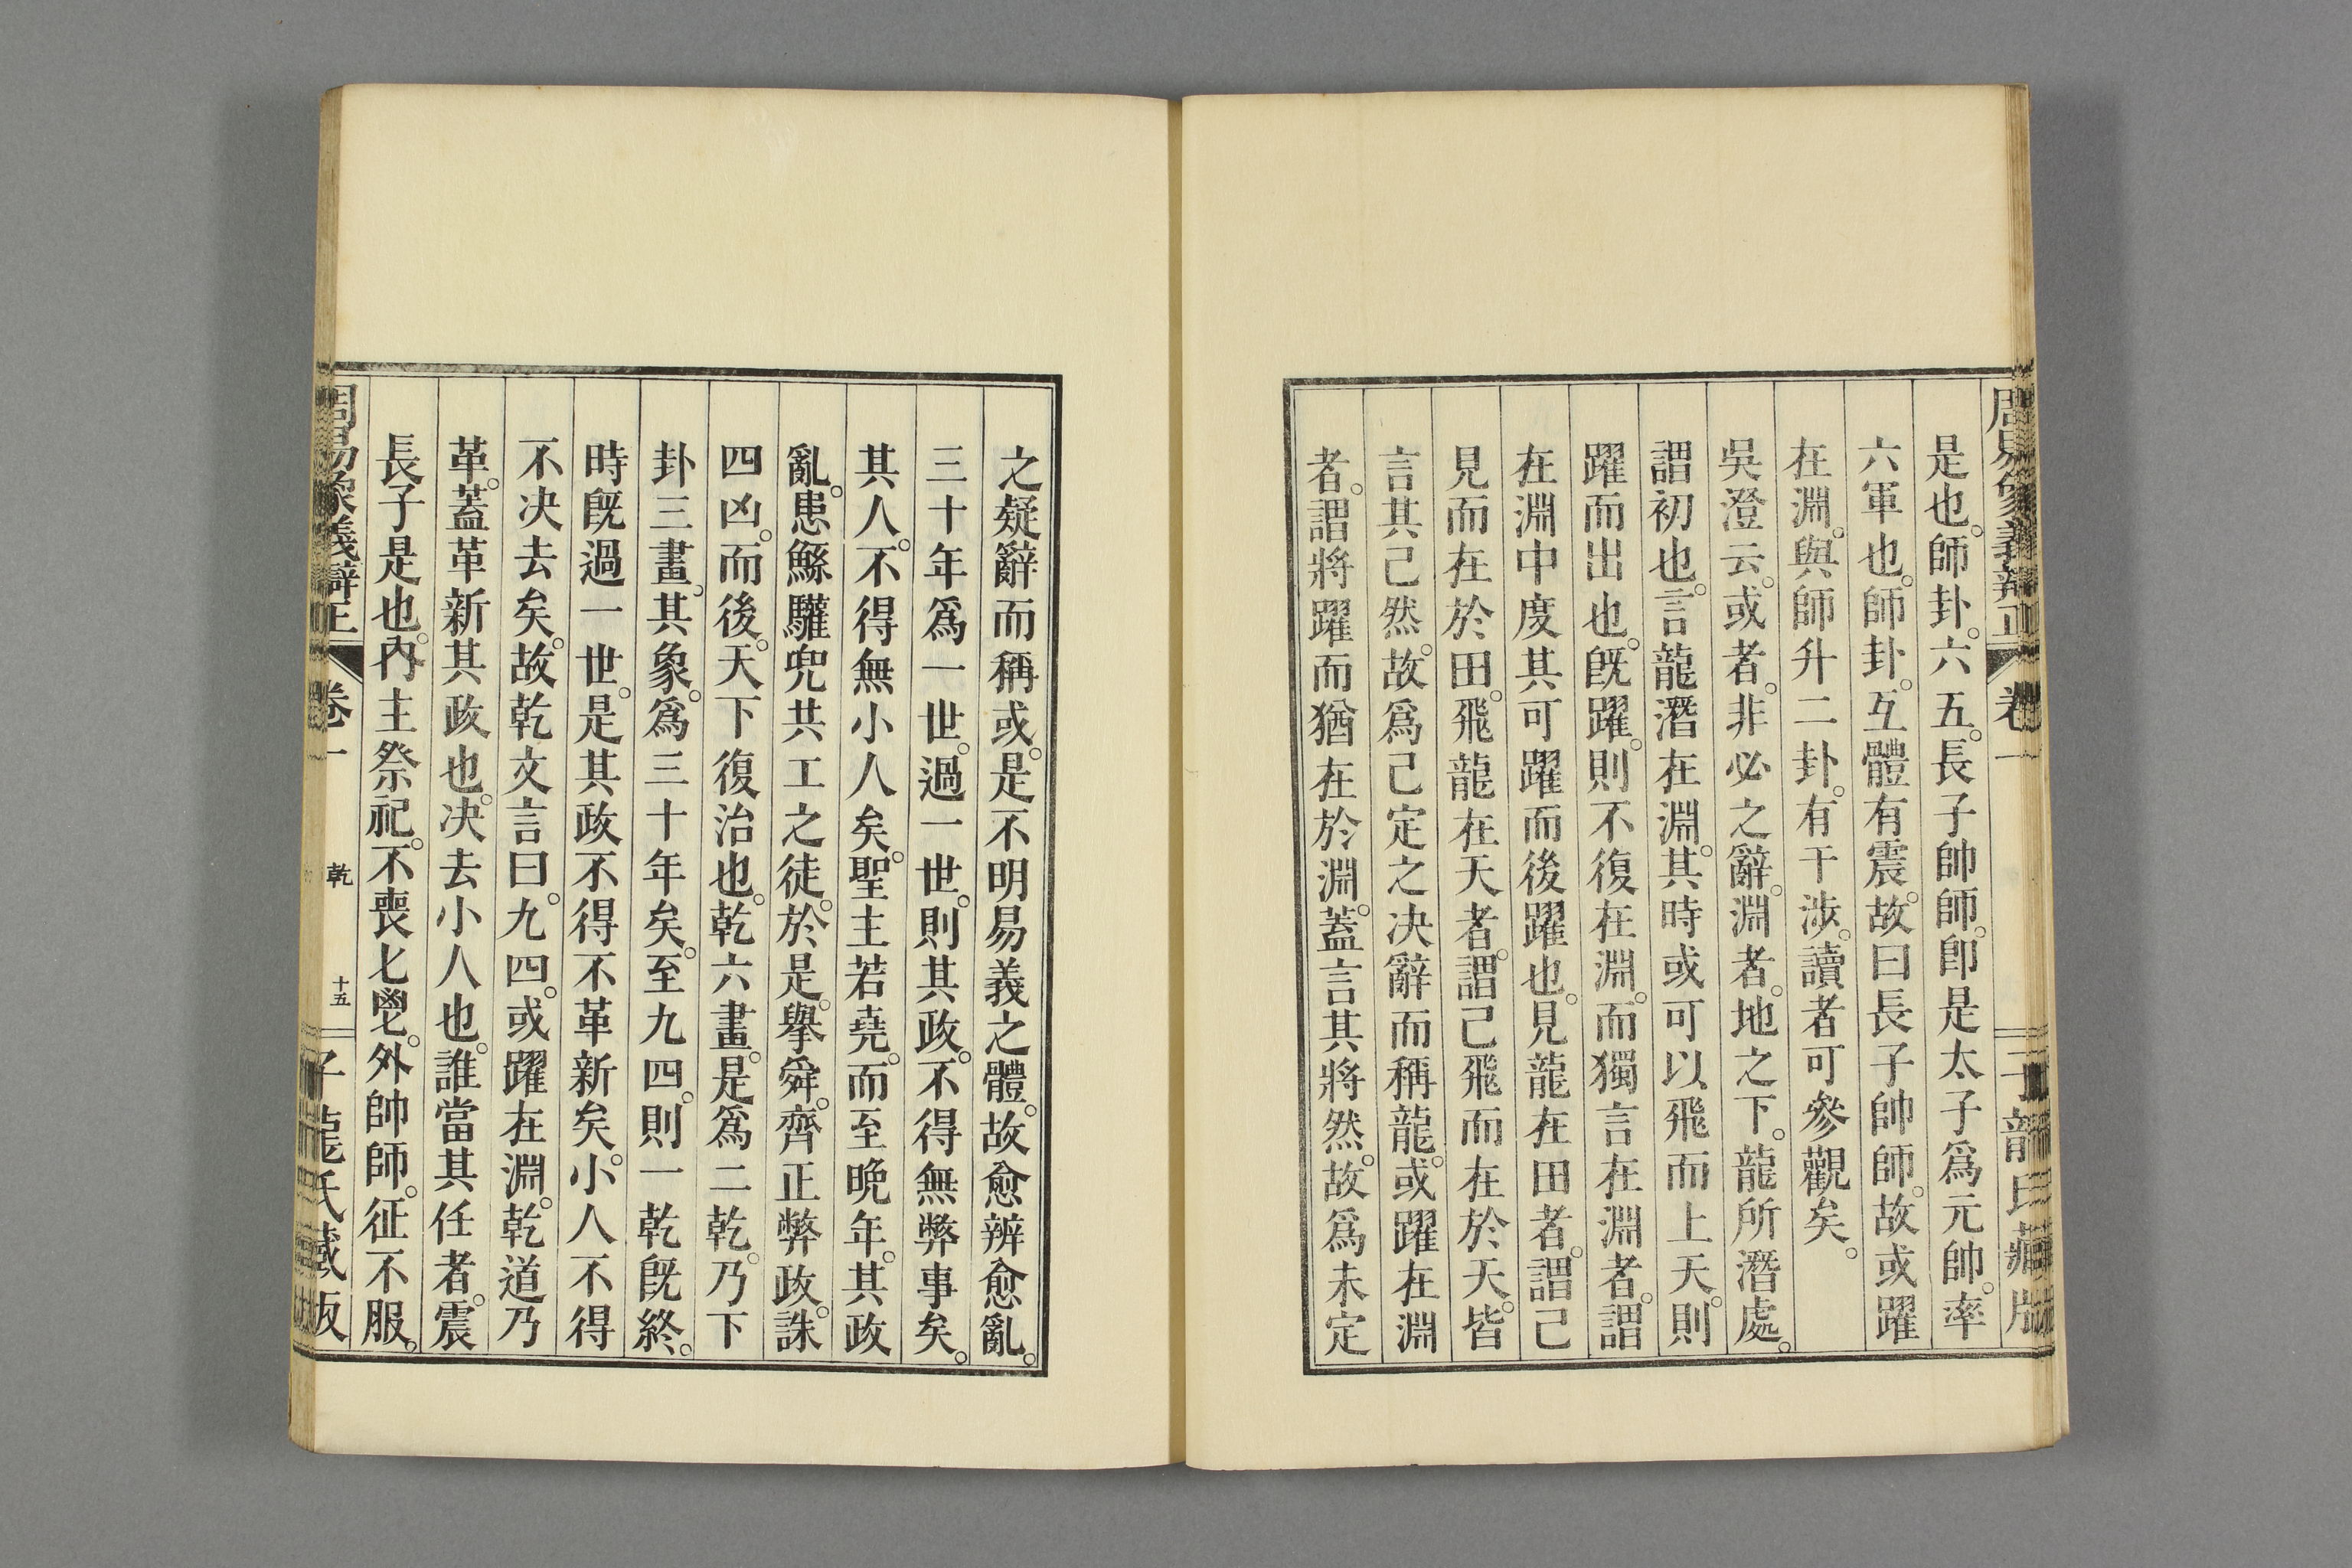 周易象義辨正 卷一 子龍氏藏版
是也。師卦。六五。長子帥師。卽是太子爲元帥。率
六軍也。師卦。互體有震。故曰長子帥師。故或躍
在淵。與師升二卦。有干涉。讀者可參觀矣。
吳澄云。或者。非必之辭。淵者。地之下。龍所潛處。
謂初也。言龍潛在淵。其時或可以飛而上天。則
躍而出也。旣躍。則不復在淵。而獨言在淵者。謂
在淵中度其可躍而後躍也。見龍在田者。謂己
見而在於田。飛龍在天者。謂己飛而在於天。皆
言其己然。故爲己定之决辭而稱龍。或躍在淵
者。謂將躍而猶在於淵。蓋言其將然。故爲未定
之疑辭而稱或。是不明易義之體。故愈辨愈亂。
三十年爲一世。過一世。則其政。不得無弊事矣。
其人。不得無小人矣。聖主若堯。而至晩年。其政
亂。患鯀驩兜共工之徒。於是。擧舜。齊正弊政。誅
四凶。而後。天下復治也。乾六畫。是爲二乾。乃下
卦三畫。其象。爲三十年矣。至九四。則一乾旣終。
時旣過一世。是其政不得不革新矣。小人不得
不决去矣。故乾文言曰。九四。或躍在淵。乾道乃
革。蓋革新其政也。决去小人也。誰當其任者。震
長子是也。內主祭祀。不喪匕鬯。外帥師。征不服。
周易象義辯正 卷一 乾 十五 子龍氏藏版